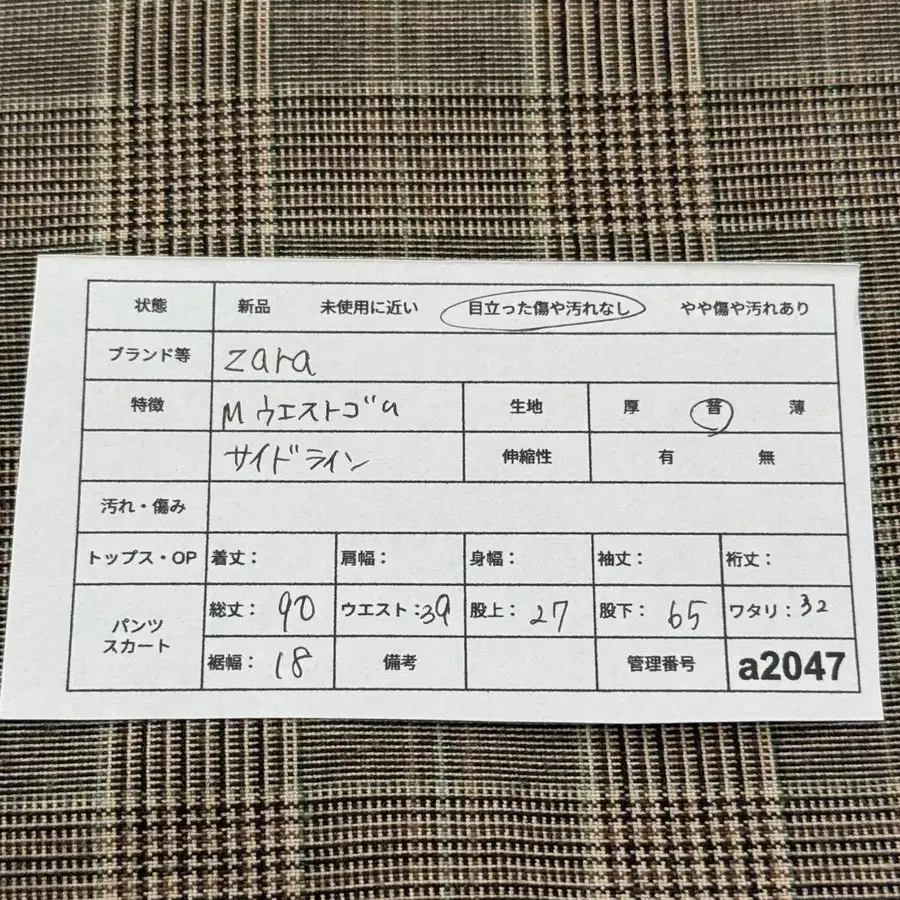 状態 新品 未使用に近い 目立った傷や汚れなし やや傷や汚れあり
ブランド等 zara
特徴 M ウエストゴム 生地 厚 普 薄
サイドライン 伸縮性 有 無
汚れ・傷み
トップス・OP 着丈: 肩幅: 身幅: 袖丈: 裄丈:
パンツ スカート 総丈: 90 ウエスト: 39 股上: 27 股下: 65 ワタリ: 32
裾幅: 18 備考 管理番号 a2047